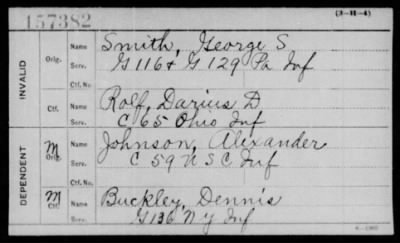 157382
(3-11-4)
INVALID
Orig. Name Smith, George S
Serv. G 116 & G 129 Pa Inf
Ctf. No.
Ctf. Name Rolf, Darius D
Serv. C 65 Ohio Inf
DEPENDENT
M Orig. Name Johnson, Alexander
Serv. C 59 U S C Inf
Ctf. No.
M Ctf. Name Buckley, Dennis
Serv. G 136 N Y Inf